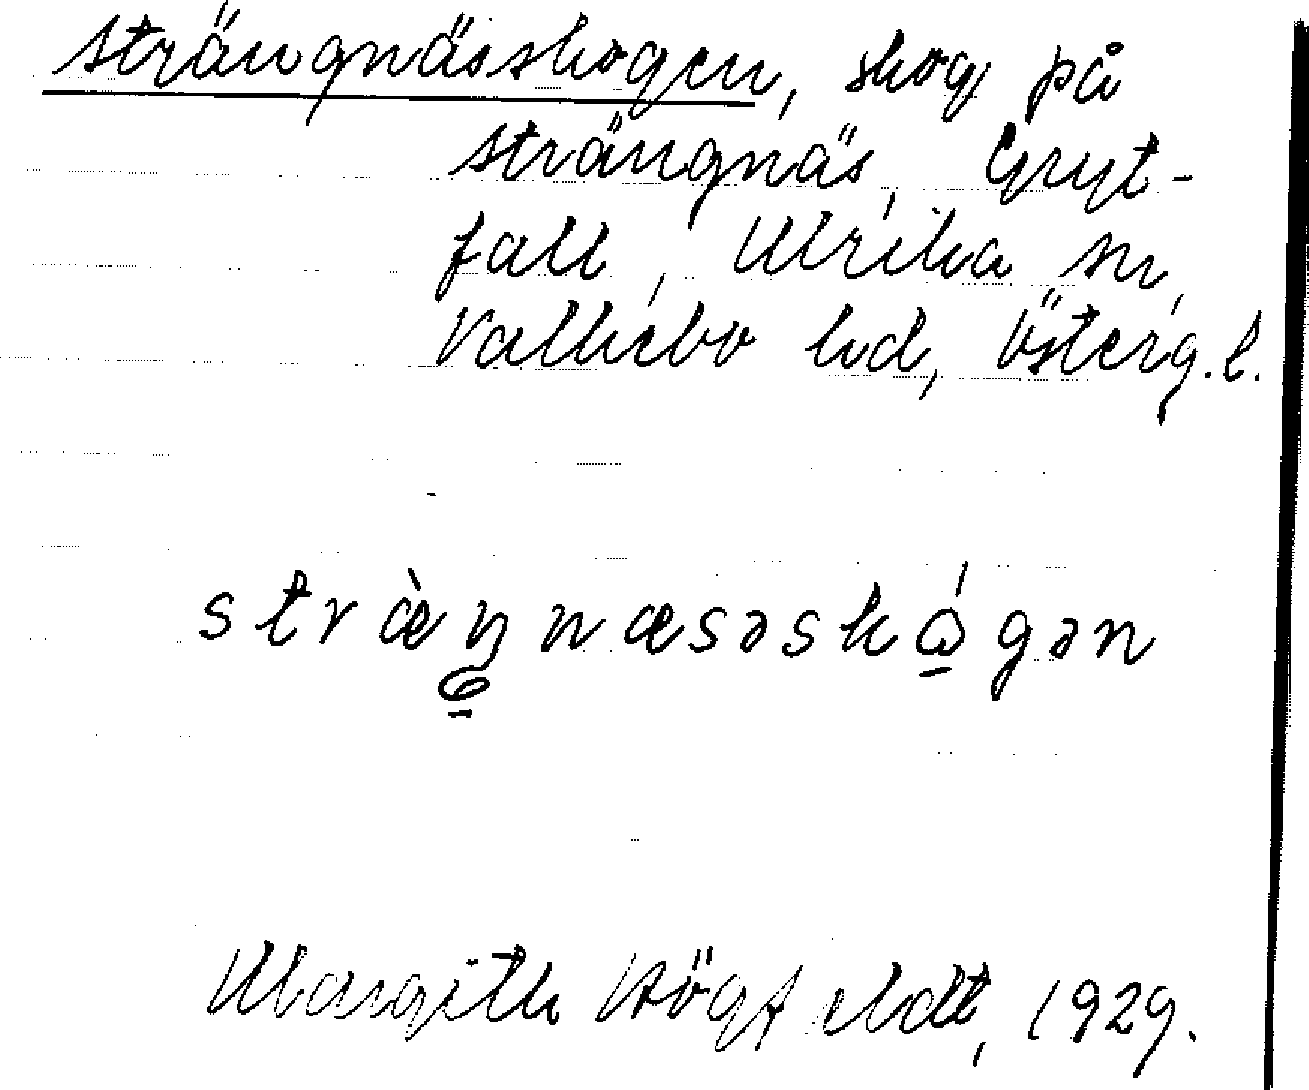 Strängnässkogen, skog på
Strängnäs, Gryt-
fall, Ulrika sn,
Valkebo hd, Österg.l.
stræ̀ŋnæsəskó̱gən
Margith Högfeldt, 1929.